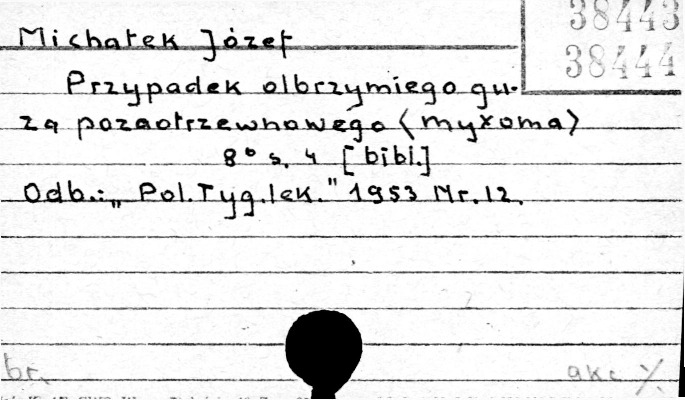 38443
38444
Michałek Józef
Przypadek olbrzymiego gu-
za pozaotrzewnowego (myxoma)
8° s. 4 [bibl.]
Odb.: „Pol.Tyg.lek." 1953 Nr.12.
br.
akc %